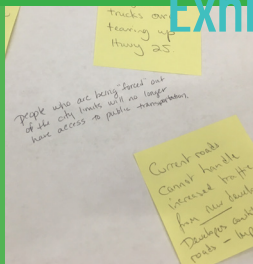 Exhi
trucks are
tearing up
Hwy 25
people who are being "forced out
of the city limits will no longer
have access to public transportation.
Current roads
cannot handle
increased traffic
from new
Developers
roads